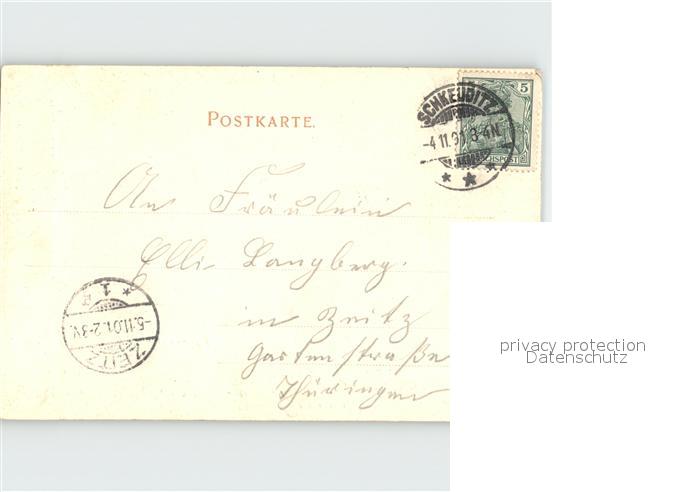 POSTKARTE.
SCHKEUDITZ
-4.11.01 3-4N.
5
REICHSPOST
An Fräulein
Elli Langberg.
in Zeitz
Gartenstraße
Thüringen
ZEITZ
-5.11.01.2-3V.
1
privacy protection
Datenschutz